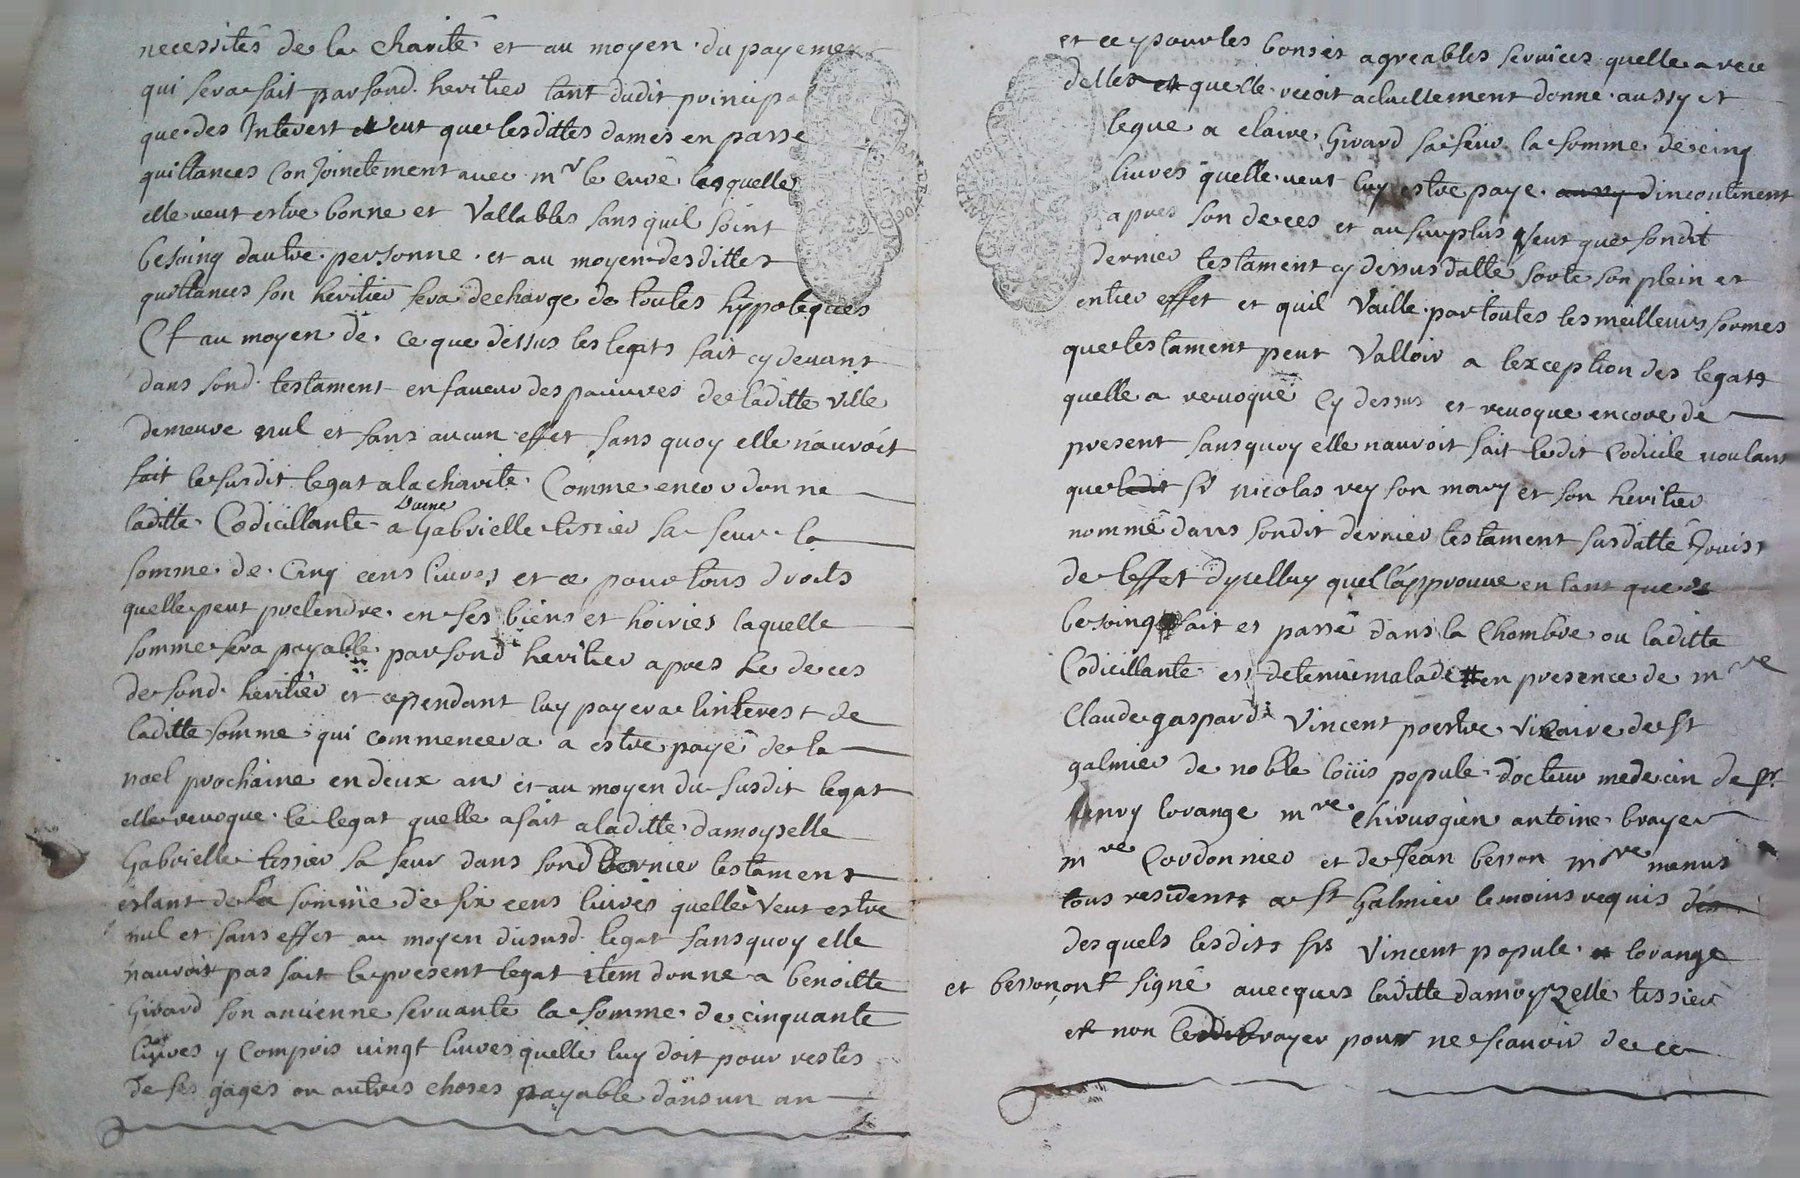 necessités de la charité et au moyen du payement
qui sera fait par sond. heritier tant dudit principal
que des Interest veut que lesdittes dames en passe
quittances Conjoinctement avec mr le curé lesquelle
elle veut estre bonne et Vallables sans quil soint
besoing dautre personne et au moyen desdittes
quittances son heritier sera decharge de toutes hippoteques
Et au moyen de ce que dessus les legats fait cy devant
dans sond. testament en faveur des pauvres de laditte ville
demeure nul et sans aucun effet sans quoy elle nauroit
fait le susdit legat a la charité Comme encor donne
laditte Codicillante a Dame Gabrielle tissier sa seur la
somme de Cinq cens livres et ce pour tous droits
quelle peut pretendre en ses biens et hoiries laquelle
somme sera payable par sond heritier apres le deces
de sond. heritier et cependant luy payera linterest de
laditte somme qui commencera a estre payé de la
noel prochaine en deux an et au moyen du susdit legat
elle revoque le legat quelle a fait a laditte damoyselle
Gabrielle tissier sa seur dans sond dernier testament
estant de la somme de six cens livres quelle Veut estre
nul et sans effet au moyen dususd. legat sans quoy elle
nauroit pas fait le present legat item donne a benoitte
Girard son ancienne servante la somme de cinquante
livres y Compris vingt livres quelle luy doit pour restes
de ses gages ou autres choses payable dans un an
et ce pour les bons et agreables services quelle a receu
delles et quelle recoit actuellement donne aussy et
legue a claire Girard sa seur la somme de cinq
livres quelle veut luy estre paye dincontinent
apres son deces et au surplus Veut que sondit
dernier testament cy dessus datté sorte son plein et
entier effet et quil Vaille par toutes les meilleurs formes
que testament peut Valloir a lexception des legats
quelle a revoqué Cy dessus et revoque encore de
present sans quoy elle nauroit fait ledit Codicile voulant
que ledit sr nicolas rey son mary et son heritier
nommé dans sondit dernier testament susdatté Jouist
de leffet dycelluy quel lapprouve en tant que de
besoing fait et passé dans la Chambre ou laditte
Codicillante est detenue malade en presence de mre
Claude gaspard Vincent prestre vicaire de st
galmier de noble loüis popule docteur medecin de sr
henry lorange mre chirurgien antoine brayer
mre Cordonnier et de Jean besson mre menus
tous residents a st Galmier temoins requis
desquels lesdits srs Vincent popule lorange
et besson ont signé avecques laditte damoyselle tissier
et non led brayer pour ne scavoir de ce